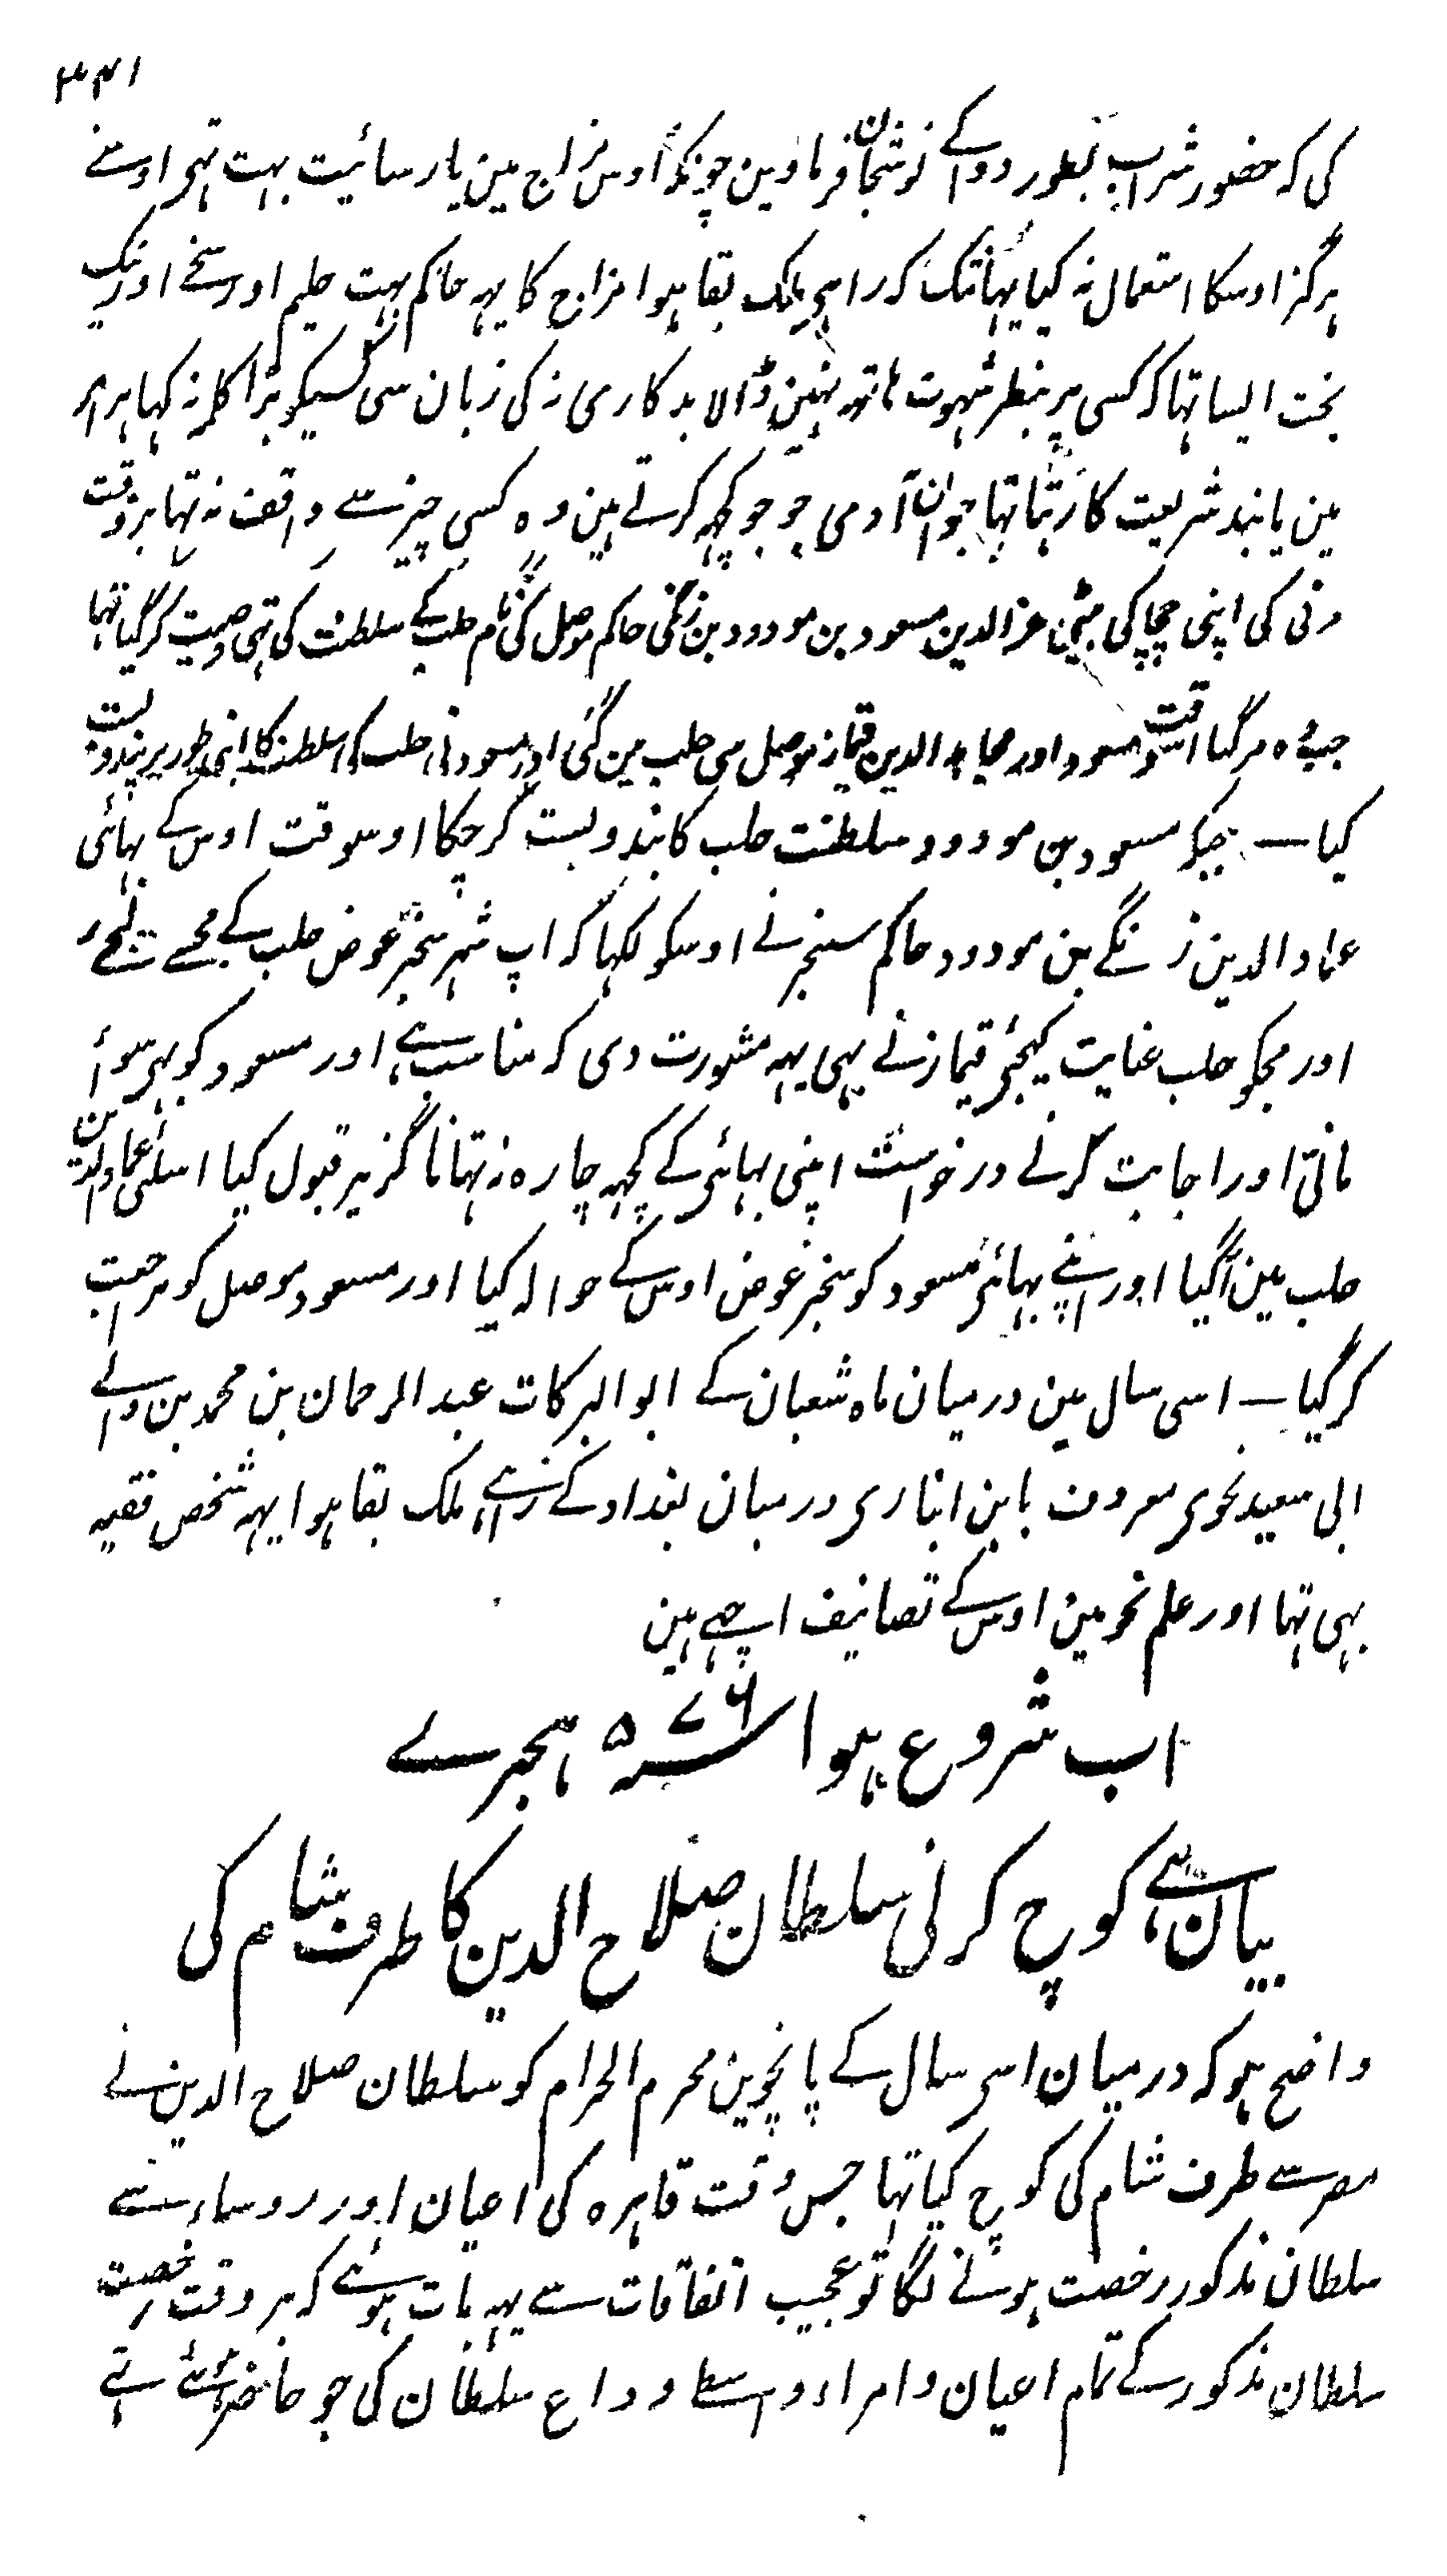 ۳۴۱
کی کہ حضور شراب بطور دوا کے نوشجان فرماوین چونکہ اوس مزاج مین پارسائیت بہت تہی اوسنے
ہرگز اوسکا استعمال نہ کیا یہانتک کہ راہی ملک بقا ہوا مزاج کا یہہ حاکم بہت حلیم اور سخے اور نیک
بخت ایسا تہا کہ کسی پر بنظر شہوت ہاتہہ نہین ڈالا بدکاری نہ کی زبان سی کسیکو برا کلمہ نہ کہا ہر امر
مین پابند شریعت کا رہتا تہا جوان آدمی جو جو کچہہ کرتے ہین وہ کسی چیز سے واقف نہ تہا بروقت
مرنی کی اپنی چچا کی بیٹی عزالدین مسعود بن مودود بن زنگی حاکم موصل کی نام حلب کے سلطنت کی تہی وصیت کر گیا تہا
جب وہ مر گیا اسوقت مسعود اور مجاہد الدین قیماز موصل سی حلب مین گئی اور مسعود نی حلب کی سلطنت کا اپنی طور پر بندوبست
کیا — جبکہ مسعود بن مودود سلطنت حلب کا بندوبست کر چکا اوسوقت اوس کے بہائی
عماد الدین زنگے بن مودود حاکم سنجر نے اوسکو لکہا کہ اپ شہر سنجر عوض حلب کے مجہسے لیجے
اور مجکو حلب عنایت کیجئی قیماز نے یہی یہہ مشورت دی کہ مناسب ہے اور مسعود کو بہی سوائے
ماننی اور اجابت کرنے درخواست اپنی بہائی کے کچہہ چارہ نہ تہا ناگزیر قبول کیا اسلئی عماد الدین
حلب مین آگیا اور اپنے بہائی مسعود کو سنجر عوض اوس کے حوالہ کیا اور مسعود موصل کو مراجعت
کر گیا — اسی سال مین درمیان ماہ شعبان کے ابو البرکات عبد الرحمان بن محمد بن
ابی سعید نحوی معروف بابن انباری درمیان بغداد کے راہے ملک بقا ہوا یہہ شخص فقیہ
بہی تہا اور علم نحو مین اوس کے تصانیف اچہے ہین
اب شروع ہوا سنہ ۵۷۶ ہجرے
بیان ہے کوچ کرنی سلطان صلاح الدین کا طرف شام کی
واضح ہو کہ درمیان اسی سال کے پانچوین محرم الحرام کو سلطان صلاح الدین نے
مصر سے طرف شام کی کوچ کیا تہا جس وقت قاہرہ کی اعیان اور روساء سے
سلطان مذکور رخصت ہونے لگا تو عجیب اتفاقات سے یہہ بات ہوئے کہ بر وقت رخصت
سلطان مذکور کے تمام اعیان و امراء واسطے وداع سلطان کی جو حاضر ہوئے تہے